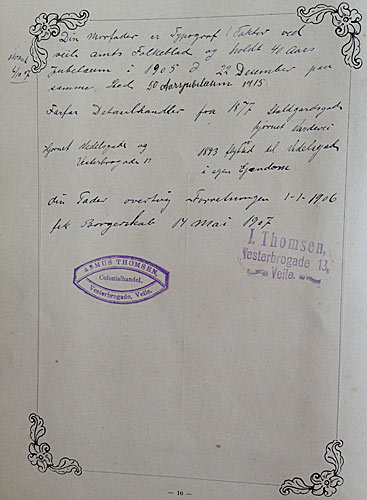 Din Morfader er Typograf (Faktor ved
Veile amts Folkeblad og holdt 40 Aars
jubelæum i 1905 d 22 December paa
samme Sted 50 Aarsjubilæum 1915
Farfar Detailhandler fra 1877
hjørnet
Hjørnet Vedelsgade og
Vesterbrogade 13
1893 til Vedelsgade
i egen Ejendom
din Fader overtog Forretningen 1-1-1906
fik Borgerskab 14 Mai 1907
I. Thomsen,
Vesterbrogade 13,
Veile.
ASMUS THOMSEN,
Colonialhandel.
Vesterbrogade, Veile.
— 10 —